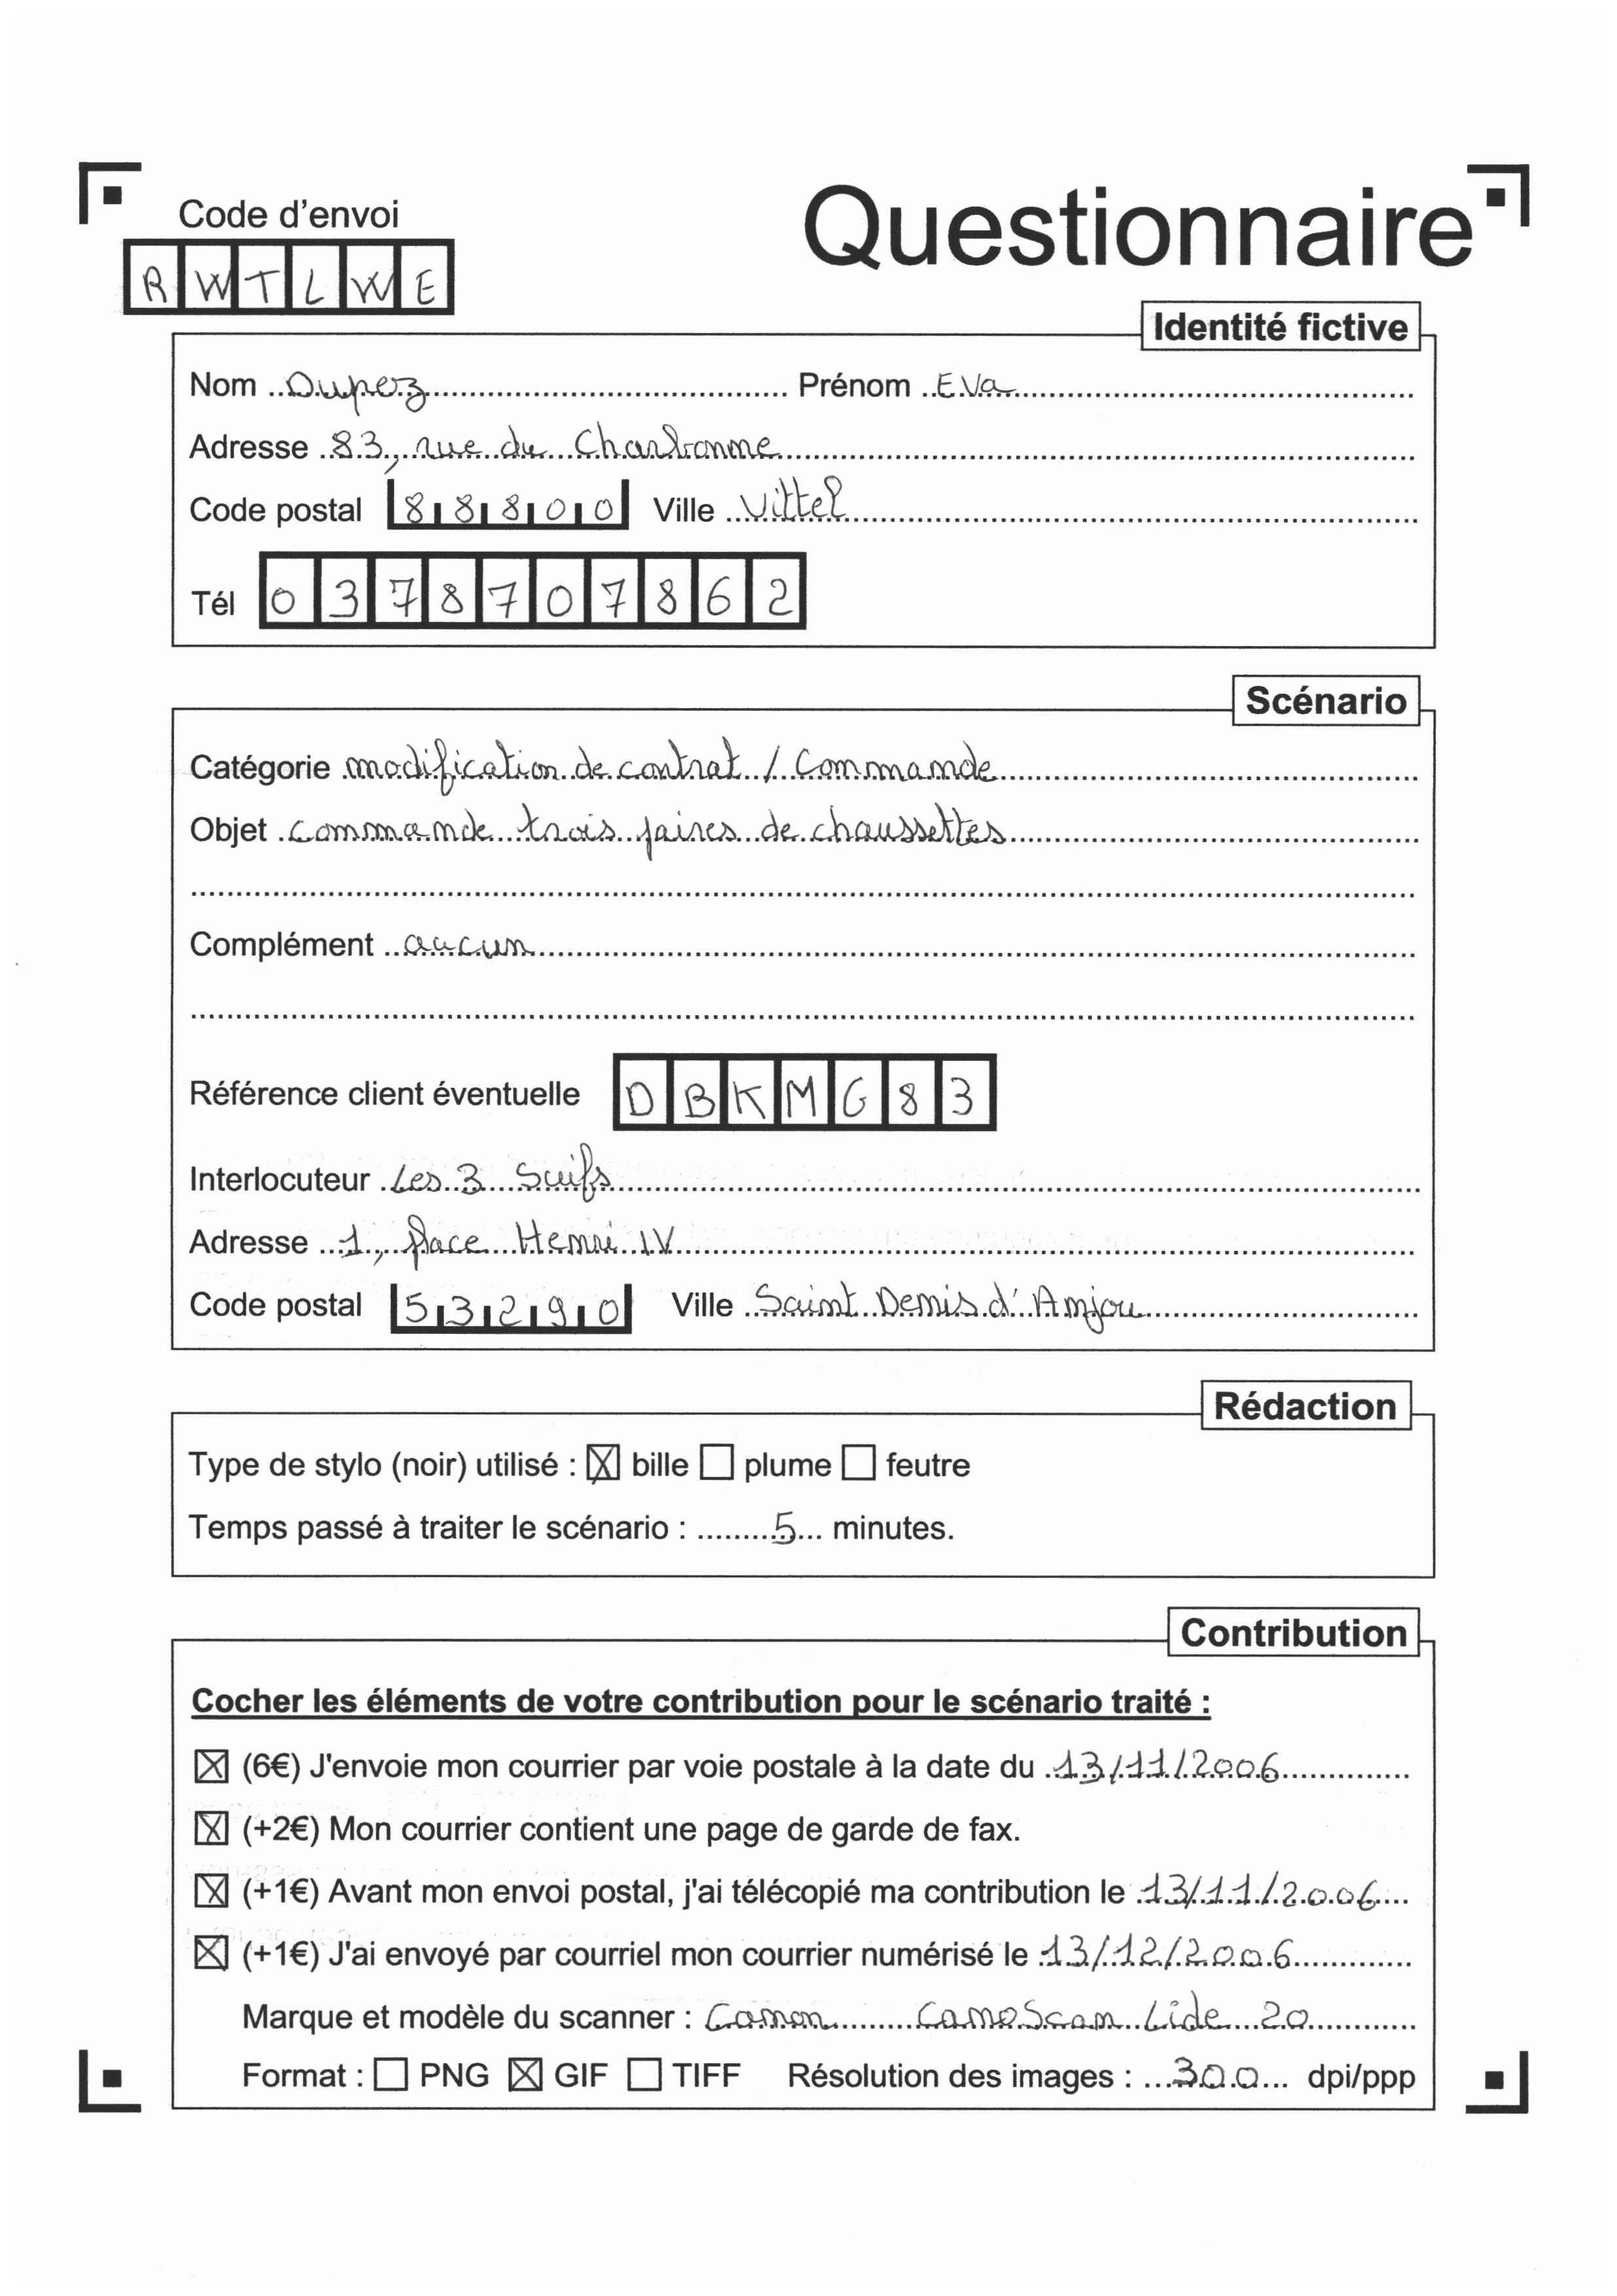 Code d'envoi
Questionnaire
RWTLWE
Identité fictive
Nom Duperz Prénom Eva
Adresse 83, rue du Charbonne
Code postal 88800 Ville Vittel
Tél 0378707862
Scénario
Catégorie modification de contrat / Commande
Objet commande trois paires de chaussettes
Complément aucun
Référence client éventuelle DBKMG83
Interlocuteur Les 3 Suifs
Adresse 1, place Henri IV
Code postal 53290 Ville Saint Denis d'Anjou
Rédaction
Type de stylo (noir) utilisé : ☒ bille ☐ plume ☐ feutre
Temps passé à traiter le scénario : 5 minutes.
Contribution
Cocher les éléments de votre contribution pour le scénario traité :
☒ (6€) J'envoie mon courrier par voie postale à la date du 13/11/2006
☒ (+2€) Mon courrier contient une page de garde de fax.
☒ (+1€) Avant mon envoi postal, j'ai télécopié ma contribution le 13/11/2006
☒ (+1€) J'ai envoyé par courriel mon courrier numérisé le 13/12/2006
Marque et modèle du scanner : Canon CanoScan Lide 20
Format : ☐ PNG ☒ GIF ☐ TIFF Résolution des images : 300 dpi/ppp